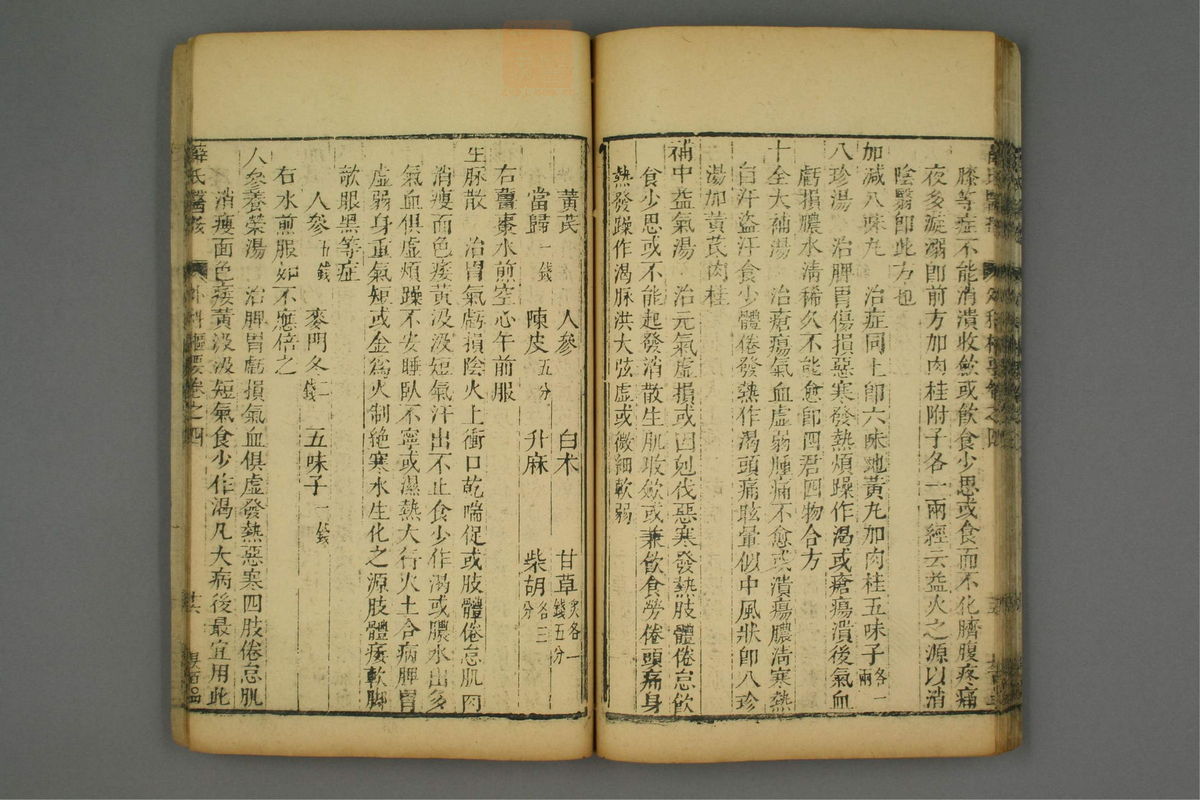 膝等症不能消潰收斂或飲食少思或食而不化臍腹疼痛
夜多漩溺卽前方加肉桂附子各一兩經云益火之源以消
陰翳卽此方也
加減八味丸　治症同上卽六味地黃丸加肉桂五味子各一兩
八珍湯　治脾胃傷損惡寒發熱煩躁作渴或瘡瘍潰後氣血
虧損膿水淸稀久不能愈卽四君四物合方
十全大補湯　治瘡瘍氣血虛弱腫痛不愈或潰瘍膿淸寒熱
自汗盜汗食少體倦發熱作渴頭痛眩暈似中風狀卽八珍
湯加黃芪肉桂
補中益氣湯　治元氣虛損或因尅伐惡寒發熱肢體倦怠飲
食少思或不能起發消散生肌收斂或兼飲食勞倦頭痛身
熱發躁作渴脉洪大弦虛或微細軟弱
黃芪　人參　白术　甘草炙各一錢五分
當歸一錢　陳皮五分　升麻　柴胡各三分
右薑棗水煎空心午前服
生脉散　治胃氣虧損陰火上衝口乾喘促或肢體倦怠肌肉
消瘦面色痿黃汲汲短氣汗出不止食少作渴或膿水出多
氣血俱虛煩躁不安睡臥不寧或濕熱大行火土合病脾胃
虛弱身重氣短或金爲火制絶寒水生化之源肢體痿軟脚
欹眼黑等症
人參五錢　麥門冬二錢　五味子一錢
右水煎服如不應倍之
人參養榮湯　治脾胃虧損氣血俱虛發熱惡寒四肢倦怠肌
消瘦面色痿黃汲汲短氣食少作渴凡大病後最宜用此
薛氏醫案　外科樞要卷之四